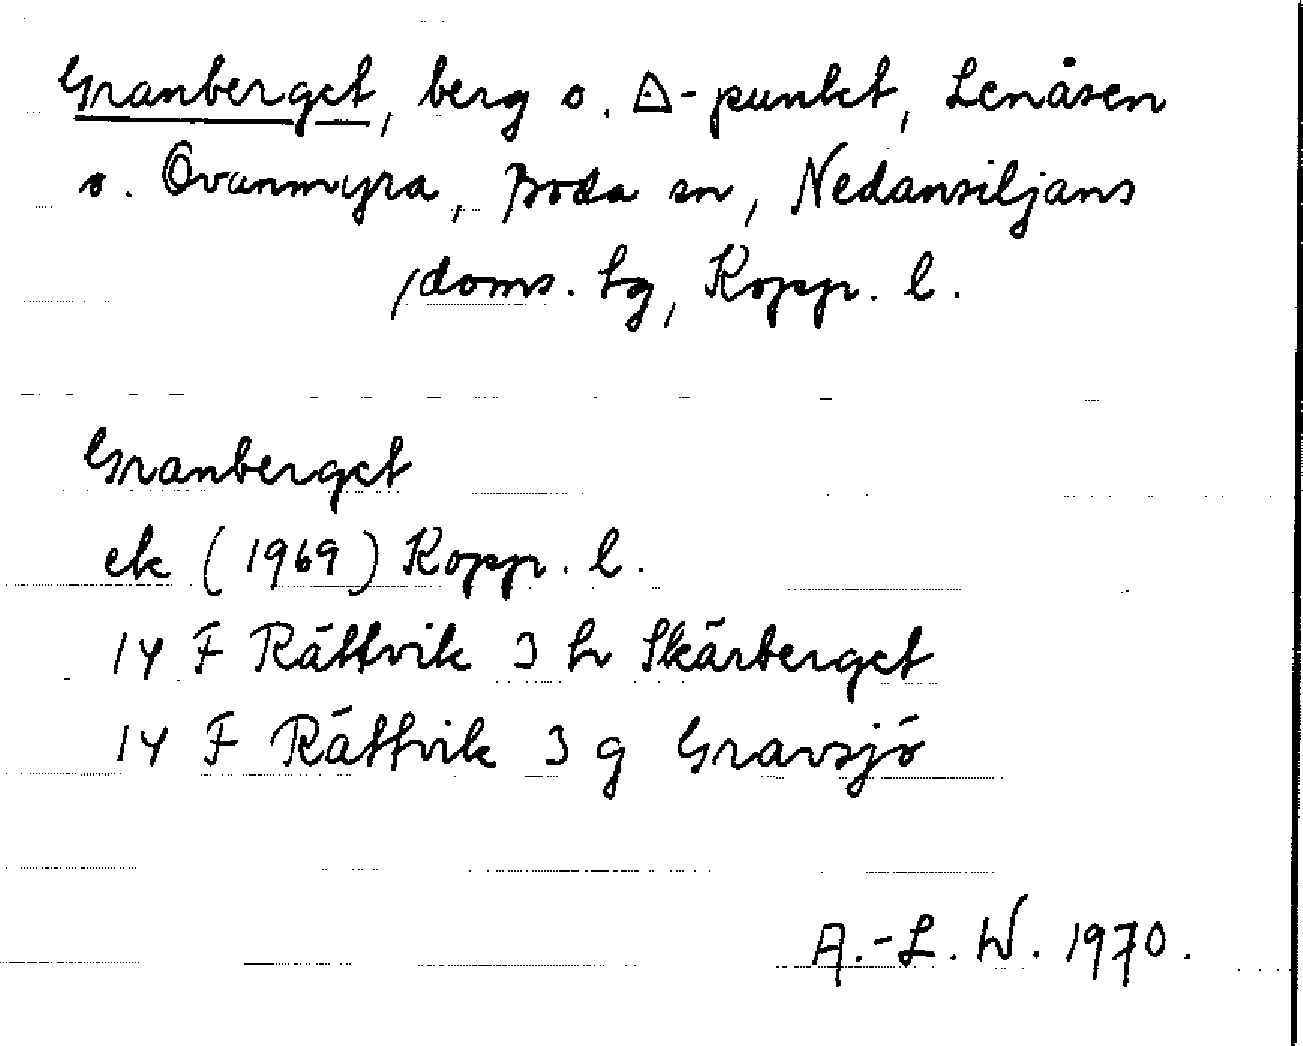 Granberget, berg o. △-punkt, Lenåsen
o. Ovanmyra, Boda sn, Nedansiljans
doms. hg, Kopp. l.
Granberget
ek (1969) Kopp. l.
14 F Rättvik 3 h Skärberget
14 F Rättvik 3 g Gravsjö
A.-L. W. 1970.